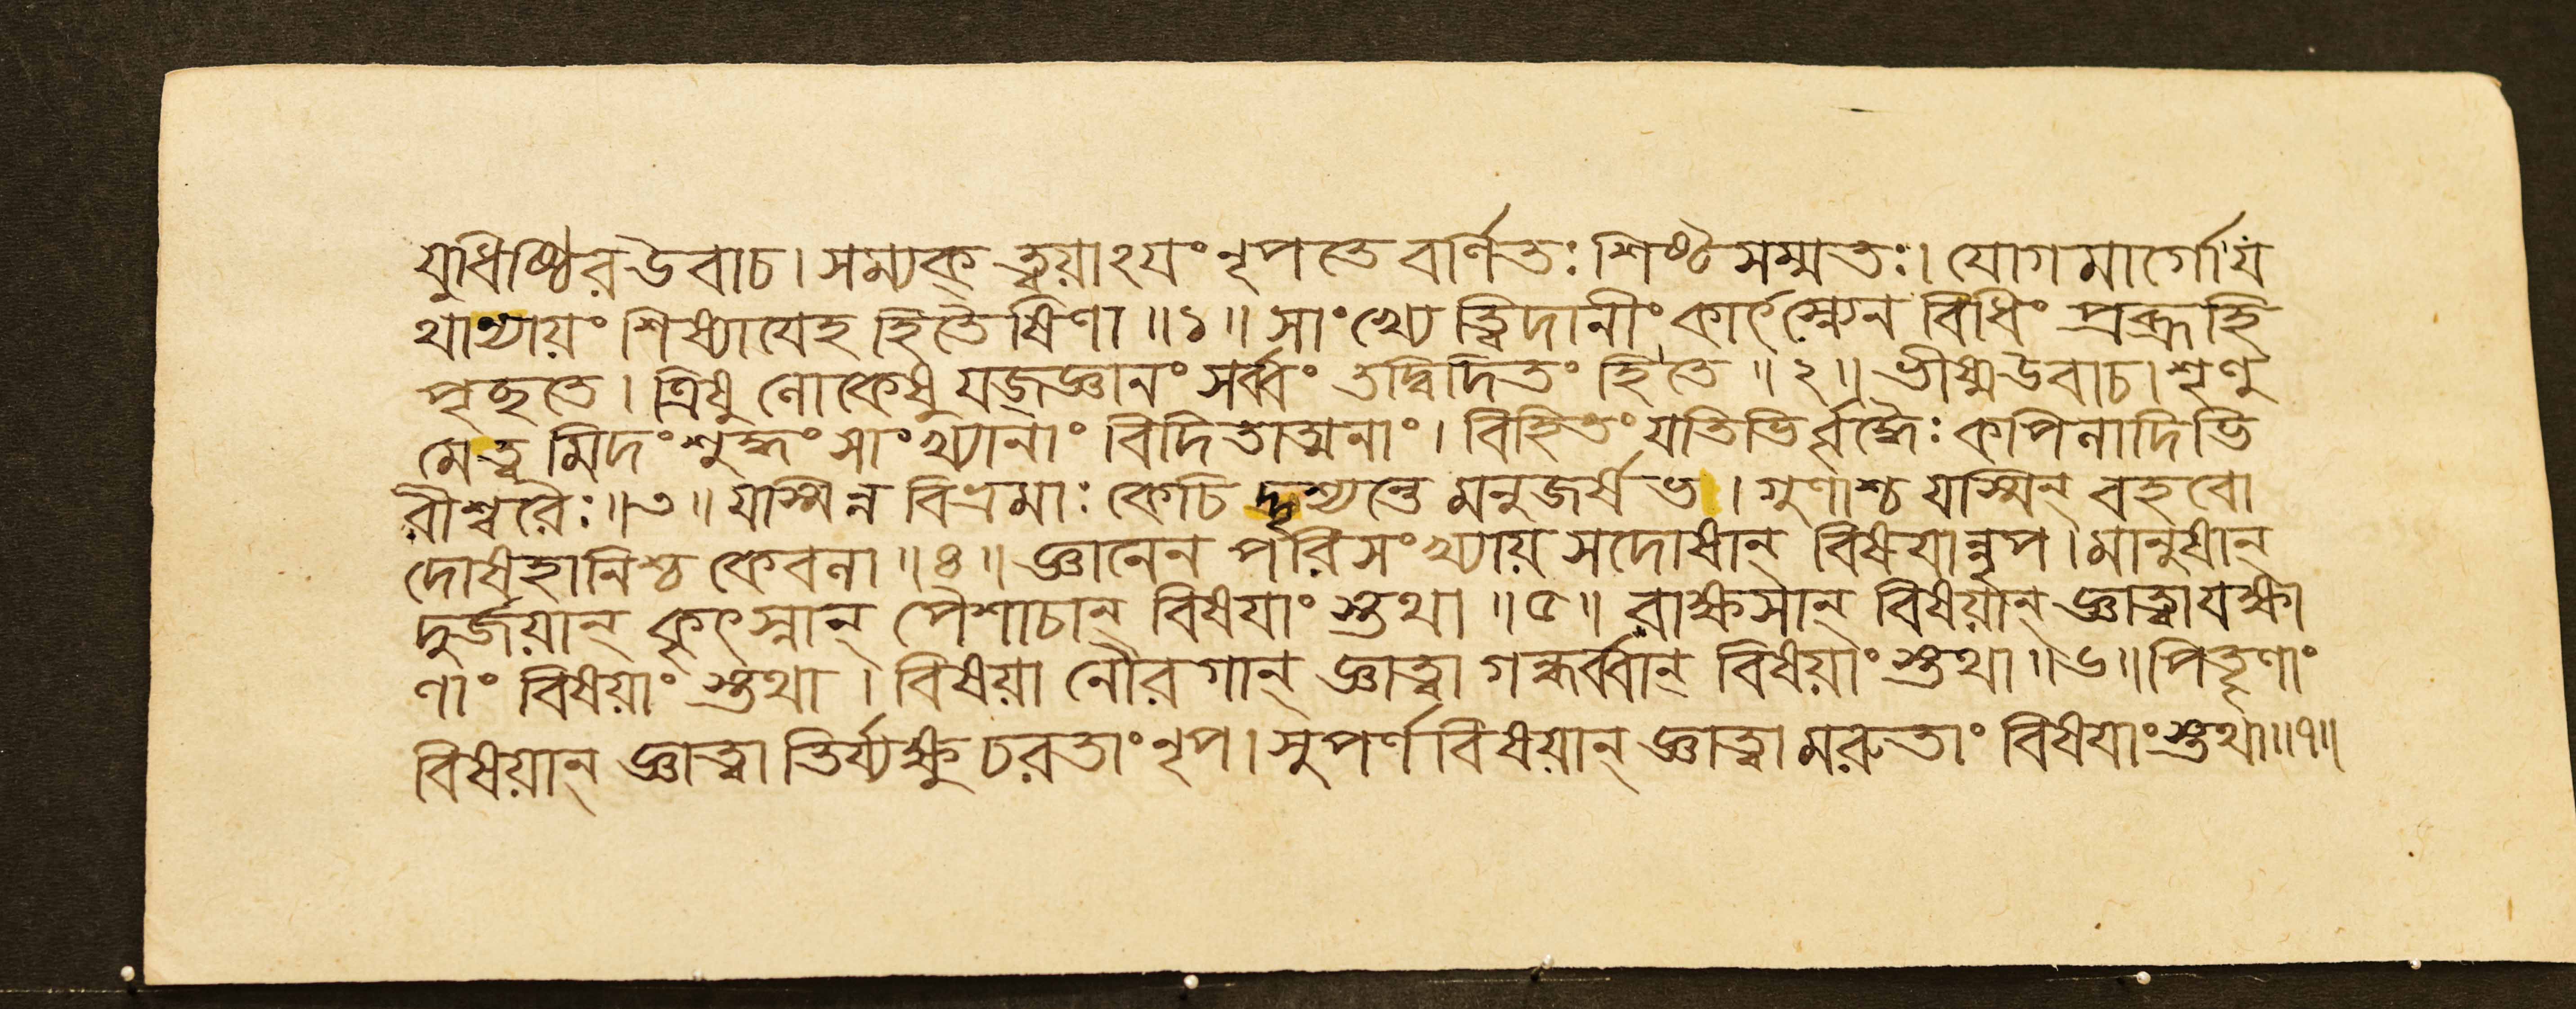 যুধিষ্ঠিরউবাচ। সম্যক্ ত্বয়াঽয়ং নৃপতে বর্ণিতঃ শিষ্টসম্মতঃ। যোগমার্গোয
থান্যায়ং শিষ্যাযেহ হিতৈষিণা ॥১॥ সাংখ্যে ত্বিদানীং কার্ৎস্নেন বিধিং প্রব্রূহি
পৃচ্ছতে। ত্রিষু লোকেষু যজ্জ্ঞানং সর্ব্বং তদ্বিদিতং হিতে ॥২॥ ভীষ্মউবাচ। শৃণু
মে ত্ব মিদং শুদ্ধং সাংখ্যানাং বিদিতাত্মনাং। বিহিতং যতিভির্বৃদ্ধৈঃ কপিলাদিভি
রীশ্বরৈঃ॥৩॥ যস্মিন্ন বিভ্রমাঃ কেচি দৃশ্যন্তে মনুজর্ষভ। গুণাশ্চ যস্মিন্ বহবো
দোষহানিশ্চ কেবলা ॥৪॥ জ্ঞানেন পরিসংখ্যায় সদোষান্ বিষয়ান্নৃপ। মানুষান্
দুর্জয়ান্ কৃৎস্নান্ পৈশাচান্ বিষয়াং স্তথা ॥৫॥ রাক্ষসান্ বিষয়ান্ জ্ঞাত্বাযক্ষা
ণাং বিষয়াং স্তথা। বিষয়া নৌরগান্ জ্ঞাত্বা গন্ধর্ব্বান্ বিষয়াং স্তথা ॥৬॥ পিতৄণাং
বিষয়ান্ জ্ঞাত্বা তির্য্যক্ষু চরতাং নৃপ। সুপর্ণবিষয়ান্ জ্ঞাত্বা মরুতাং বিষয়াং স্তথা॥৭॥